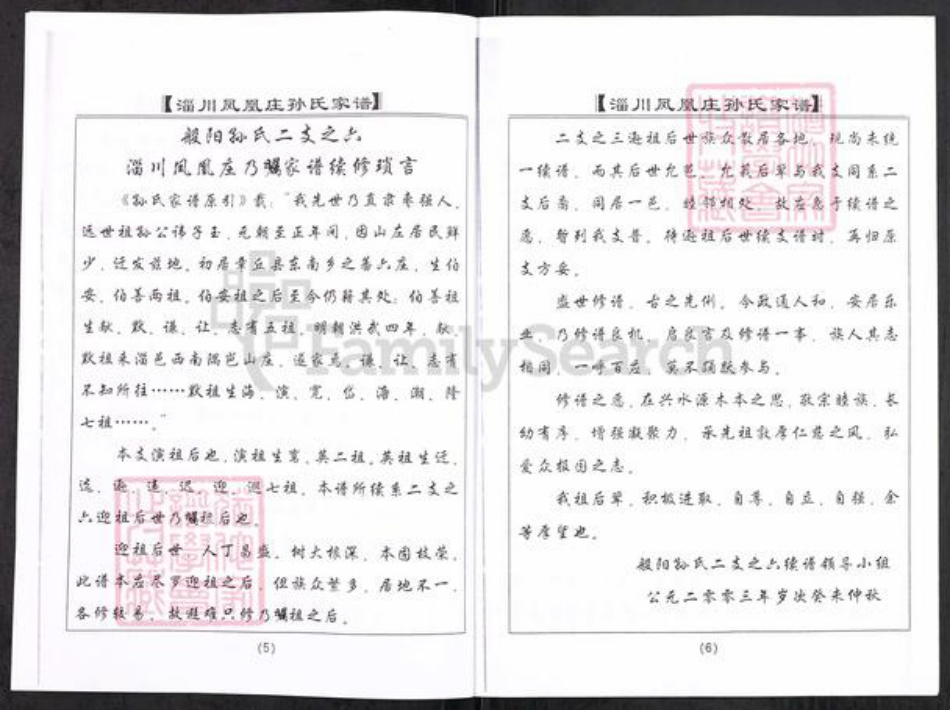 【淄川凤凰庄孙氏家谱】
般阳孙氏二支之六
淄川凤凰庄乃瞩家谱续修琐言
《孙氏家谱原引》载："我先世乃直隶枣强人,
远世祖孙公讳子玉,元朝至正年间,因山左居民鲜
少,迁发兹地。初居章丘县东南乡之善六庄,生伯
安、伯善两祖。伯安祖之后至今仍籍其处;伯善祖
生献、默、谦、让、志有五祖,明朝洪武四年,献、
默祖来淄邑西南隅岜山庄,遂家焉。谦、让、志有
不知所往……默祖生海、演、宽、岱、浩、潮、隆
七祖……。"
本支演祖后也,演祖生鸾、英二祖,英祖生迁、
选、逊、速、迟、迎、巡七祖。本谱所续系二支之
六迎祖后世乃瞩祖后也。
迎祖后世,人丁昌盛。树大根深,本固枝荣,
此谱本应尽罗迎祖之后,但族众繁多,居地不一,
各修较易,故避难只修乃瞩祖之后。
(5)
【淄川凤凰庄孙氏家谱】
二支之三逊祖后世族众散居各地,现尚未统
一续谱,而其后世允芭、允莪后辈与我支同系二
支后裔,同居一邑,睦邻相处,故应急于续谱之
愿,暂列我支普。待逊祖后世续支谱时,再归原
支方妥。
盛世修谱,古之先例。今政通人和,安居乐
业,乃修谱良机,启良言及修谱一事,族人其志
相同,一呼百应,莫不踊跃参与。
修谱之愿,在兴水源木本之思,敬宗睦族,长
幼有序,增强凝聚力,承先祖敦厚仁慈之风,弘
爱众报国之志。
我祖后辈,积极进取,自尊、自立、自强,余
等厚望也。
般阳孙氏二支之六续谱领导小组
公元二零零三年岁次癸未仲秋
(6)
FamilySearch